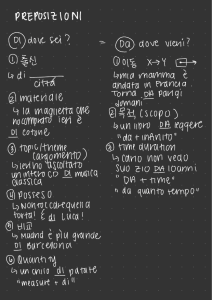 PREPOSIZIONI
DI dove sei?
① 출신
↳ di ___
città
② materiale
↳ la maglietta che
ho comprato ieri è
DI cotone
③ topic/theme
(argomento)
↳ ieri ho ascoltato
un intero CD DI musica
classica
④ POSSESO
↳ Non toccare quella
torta! È di Luca!
⑤ 비교
↳ Madrid è più grande
DI Barcelona
⑥ Quantity
↳ un chilo di patate
"measure + di"
= DA dove vieni?
① 이동 X→Y
↳ mia mamma è
andata in Francia.
Torna DA Parigi
domani
② 목적 (scopo)
↳ un libro DA leggere
"da + infinito"
③ time duration
↳ Carlo non vedo
suo zio DA 10 anni
"DA + time"
"da quanto tempo"